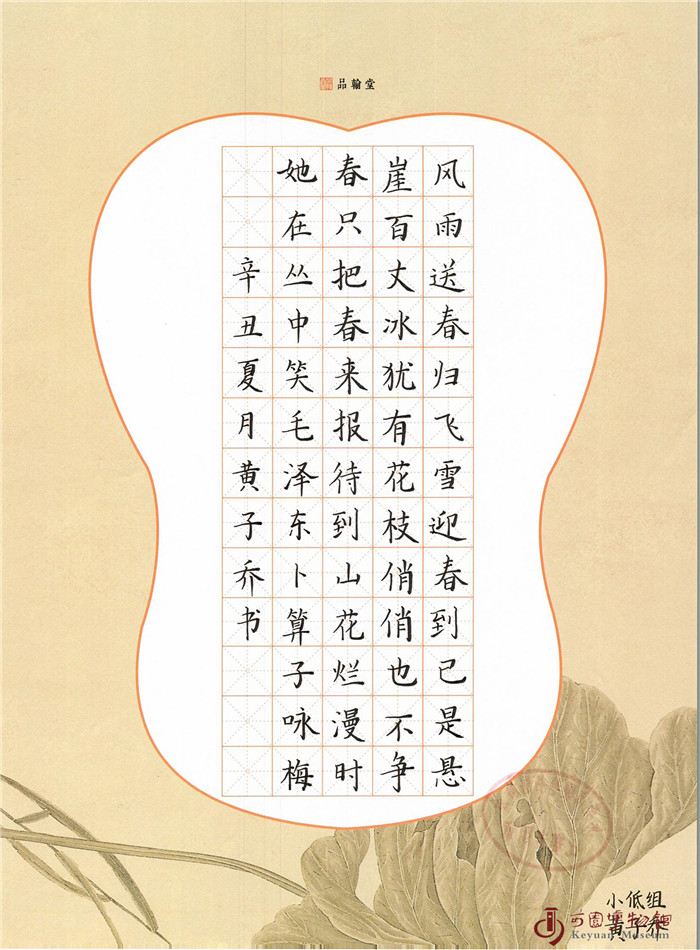 品翰堂
风雨送春归飞雪迎春到已是悬
崖百丈冰犹有花枝俏俏也不争
春只把春来报待到山花烂漫时
她在丛中笑毛泽东卜算子咏梅
辛丑夏月黄子乔书
小低组
黄子乔
可园博物馆
Keyuan Museum